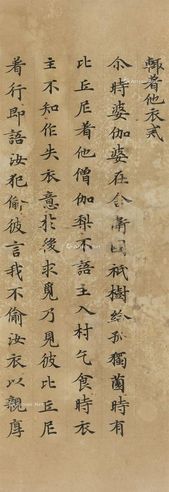 輙著他衣戒
尒時婆伽婆在舍衛國祇樹給孤獨薗時有
比丘尼著他僧伽梨不語主入村乞食時衣
主不知作失衣意於後求覓乃見彼比丘尼
著行即語汝犯偷彼言我不偷汝衣以親厚